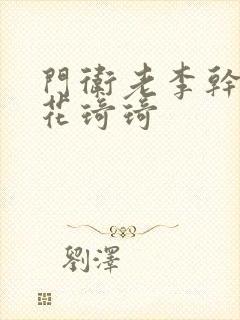 門衛老李幹
花琦琦
劉澤